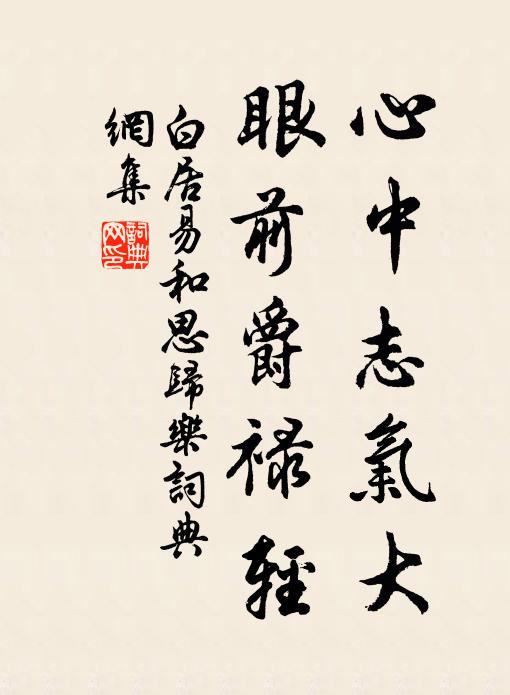 心中志氣大
眼前爵祿輕
白居易和思歸樂詞典
網集
詞典
网印